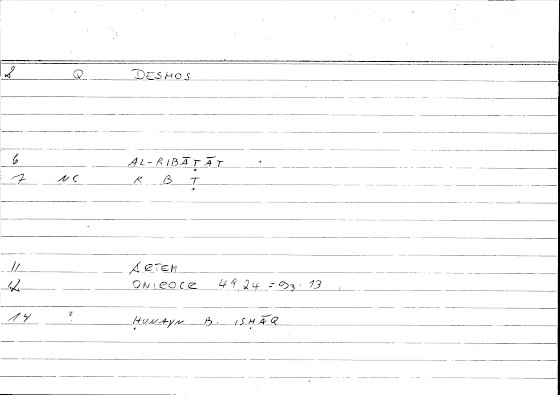 2 Q DESMOS
6 AL-RIBĀṬĀT
7 NC R B Ṭ
11 ARTEM
12 ONIROCR 49,24 = 93.13
14 ? ḤUNAYN B. ISḤĀQ